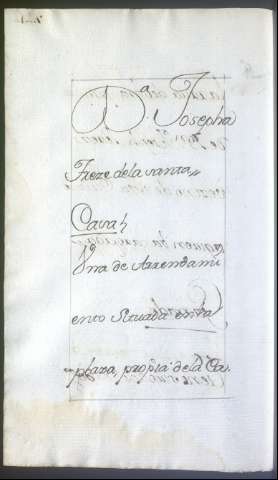 D.ª Josepha
Freze dela santa
Casa
1ª
Vna de Arrendami
ento Situada enla
plaza, propia dela Ca.